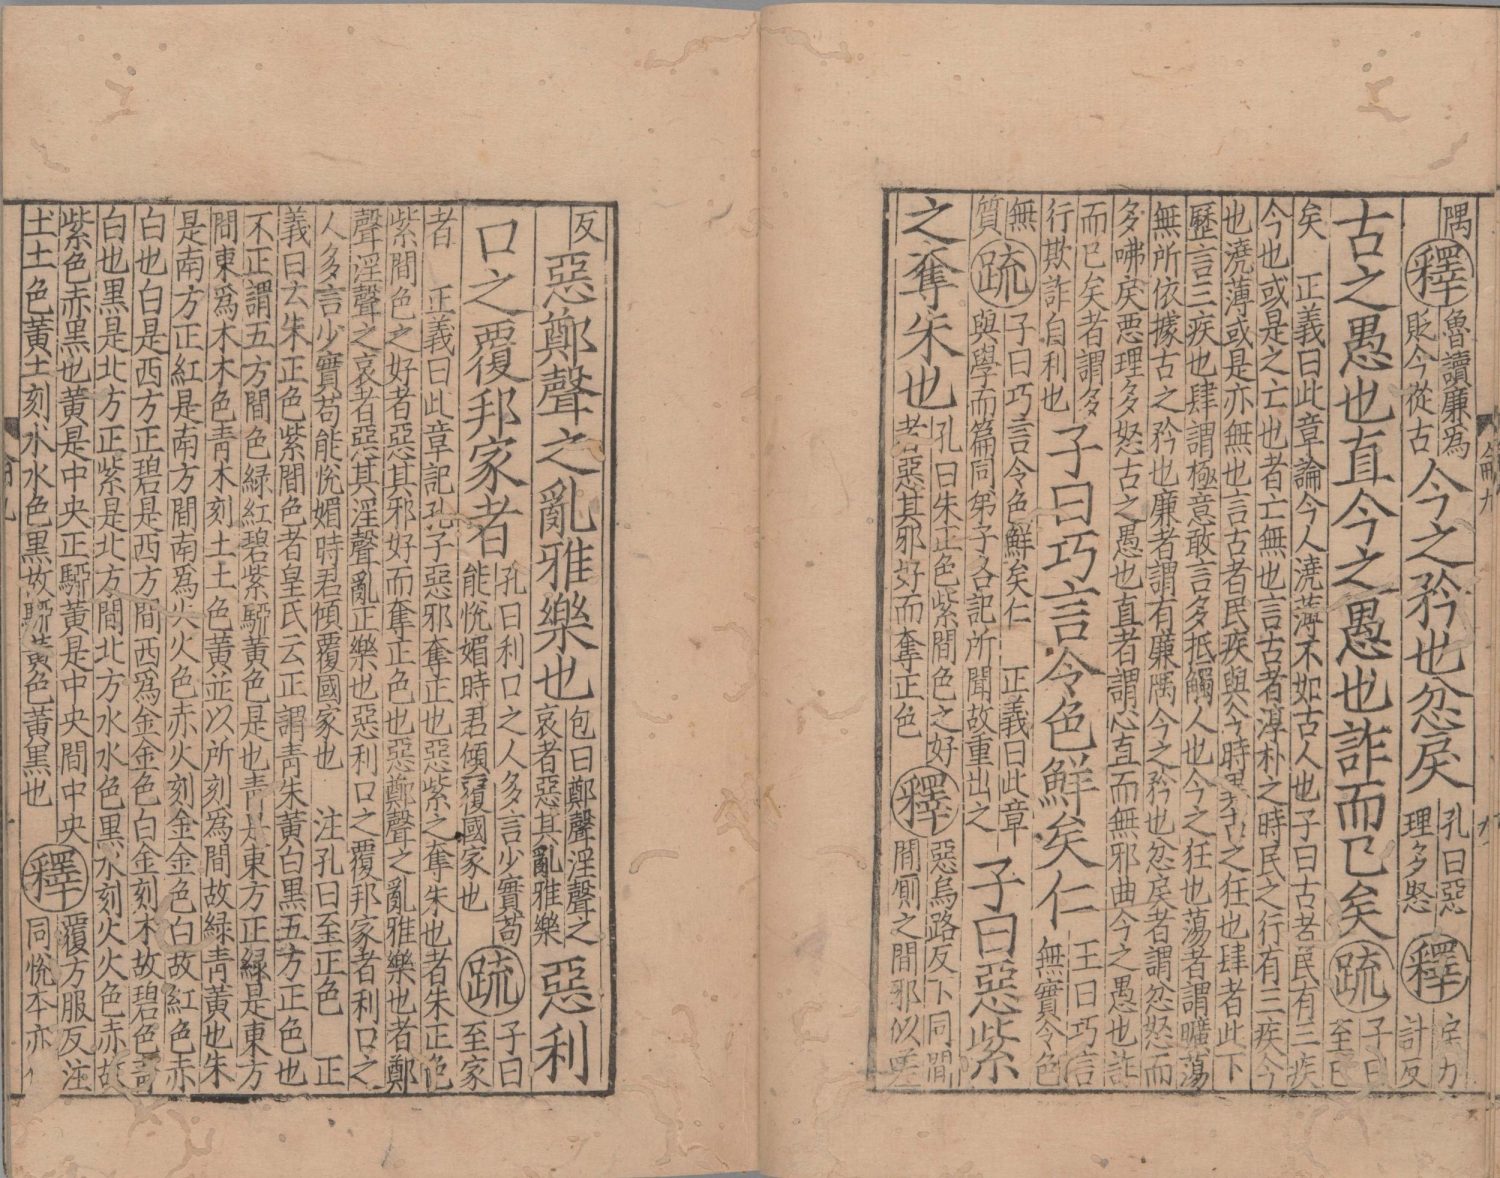 隅釋魯讀廉為貶今從古今之矜也忿戾孔曰惡理多怒釋戾力計反
古之愚也直今之愚也詐而已矣疏子曰至已
矣　正義曰此章論今人澆薄不如古人也子曰古者民有三疾
今也或是之亡也者亡無也言古者淳朴之時民之行有三疾今
也澆薄或是亦無也言古者民疾與今時異者古之狂也肆者此下
歷言三疾也肆謂極意敢言多抵觸人也今之狂也蕩者謂曠蕩
無所依據古之矜也廉者謂有廉隅今之矜也忿戾者謂忿怒而
多咈戾惡理多怒古之愚也直者謂心直而無邪曲今之愚也詐
而已矣者謂多行欺詐自利也子曰巧言令色鮮矣仁王曰巧言無實令色
無質疏子曰巧言令色鮮矣仁　正義曰此章與學而篇同弟子各記所聞故重出之子曰惡紫
之奪朱也孔曰朱正色紫間色之好者惡其邪好而奪正色釋惡烏路反下同間間廁之間邪似嗟
反惡鄭聲之亂雅樂也包曰鄭聲淫聲之哀者惡其亂雅樂惡利
口之覆邦家者孔曰利口之人多言少實苟能悅媚時君傾覆國家也疏子曰至家
者　正義曰此章記孔子惡邪奪正也惡紫之奪朱也者朱正色
紫間色之好者惡其邪好而奪正色也惡鄭聲之亂雅樂也者鄭
聲淫聲之哀者惡其淫聲亂正樂也惡利口之覆邦家者利口之
人多言少實苟能悅媚時君傾覆國家也　注孔曰至正色　正
義曰云朱正色紫間色者皇氏云正謂青朱黃白黑五方正色也
不正謂五方間色綠紅碧紫騮黃色是也青是東方正綠是東方
間東為木木色青木刻土土色黃並以所刻為間故綠青黃也朱
是南方正紅是南方間南為火火色赤火刻金金色白故紅色赤
白也白是西方正碧是西方間西為金金色白金刻木故碧色青
白也黑是北方正紫是北方間北方水水色黑水刻火火色赤故
紫色赤黑也黃是中央正騮黃是中央間中央釋覆方服反注
土土色黃土刻水水色黑故騮黃色黃黑也同悅本亦